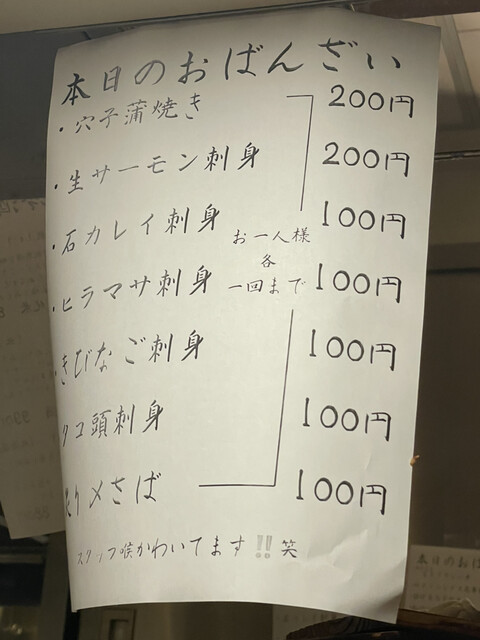 本日のおばんざい
・穴子蒲焼き 200円
・生サーモン刺身 200円
・石カレイ刺身 100円
・ヒラマサ刺身 100円
お一人様
各
一回まで
・きびなご刺身 100円
タコ頭刺身 100円
炙り〆さば 100円
スタッフ喉かわいてます!!笑
本日のおば